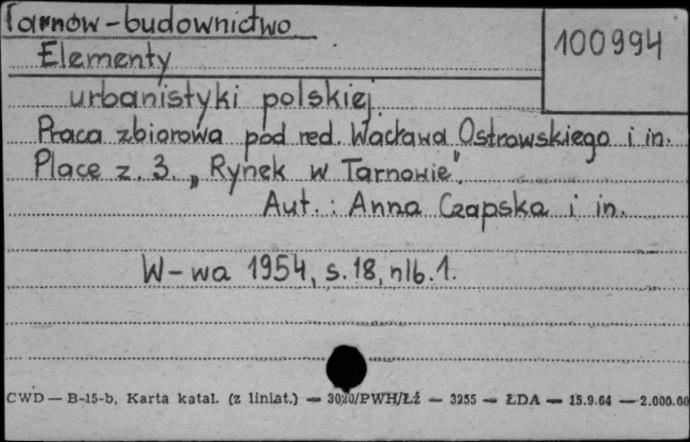 Tarnów - budownictwo
100994
Elementy
urbanistyki polskiej.
Praca zbiorowa pod red. Wacława Ostrowskiego i in.
Place z. 3. „Rynek w Tarnowie".
Aut.: Anna Czapska i in.
W-wa 1954, s. 18, nlb. 1.
CWD — B-15-b, Karta katal. (z liniat.) — 3020/PWH/Łź — 3255 — ŁDA — 15.9.64 — 2.000.00